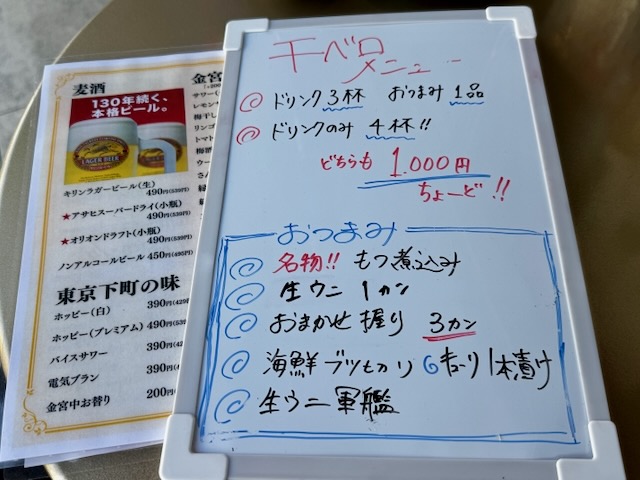 麦酒
130年続く、
本格ビール。
LAGER BEER
キリンラガービール(生)
490円(539円)
★アサヒスーパードライ(小瓶)
490円(539円)
★オリオンドラフト(小瓶)
490円(539円)
ノンアルコールビール 450円(495円)
東京下町の味
ホッピー(白) 390円(429円
ホッピー(プレミアム) 490円(539
バイスサワー 390円(42
電気ブラン 390円(4
金宮中お替り 200円(
金宮
サワー(
レモン
梅干し
リンゴ
トマト
梅酒
ウー
さん
緑
千ベロ
メニュー
ドリンク3杯 おつまみ1品
ドリンクのみ 4杯!!
どちらも 1.000円
ちょーど!!
おつまみ
名物!! もつ煮込み
生ウニ1カン
おまかせ握り 3カン
海鮮ブツもり キューリ1本漬け
生ウニ軍艦